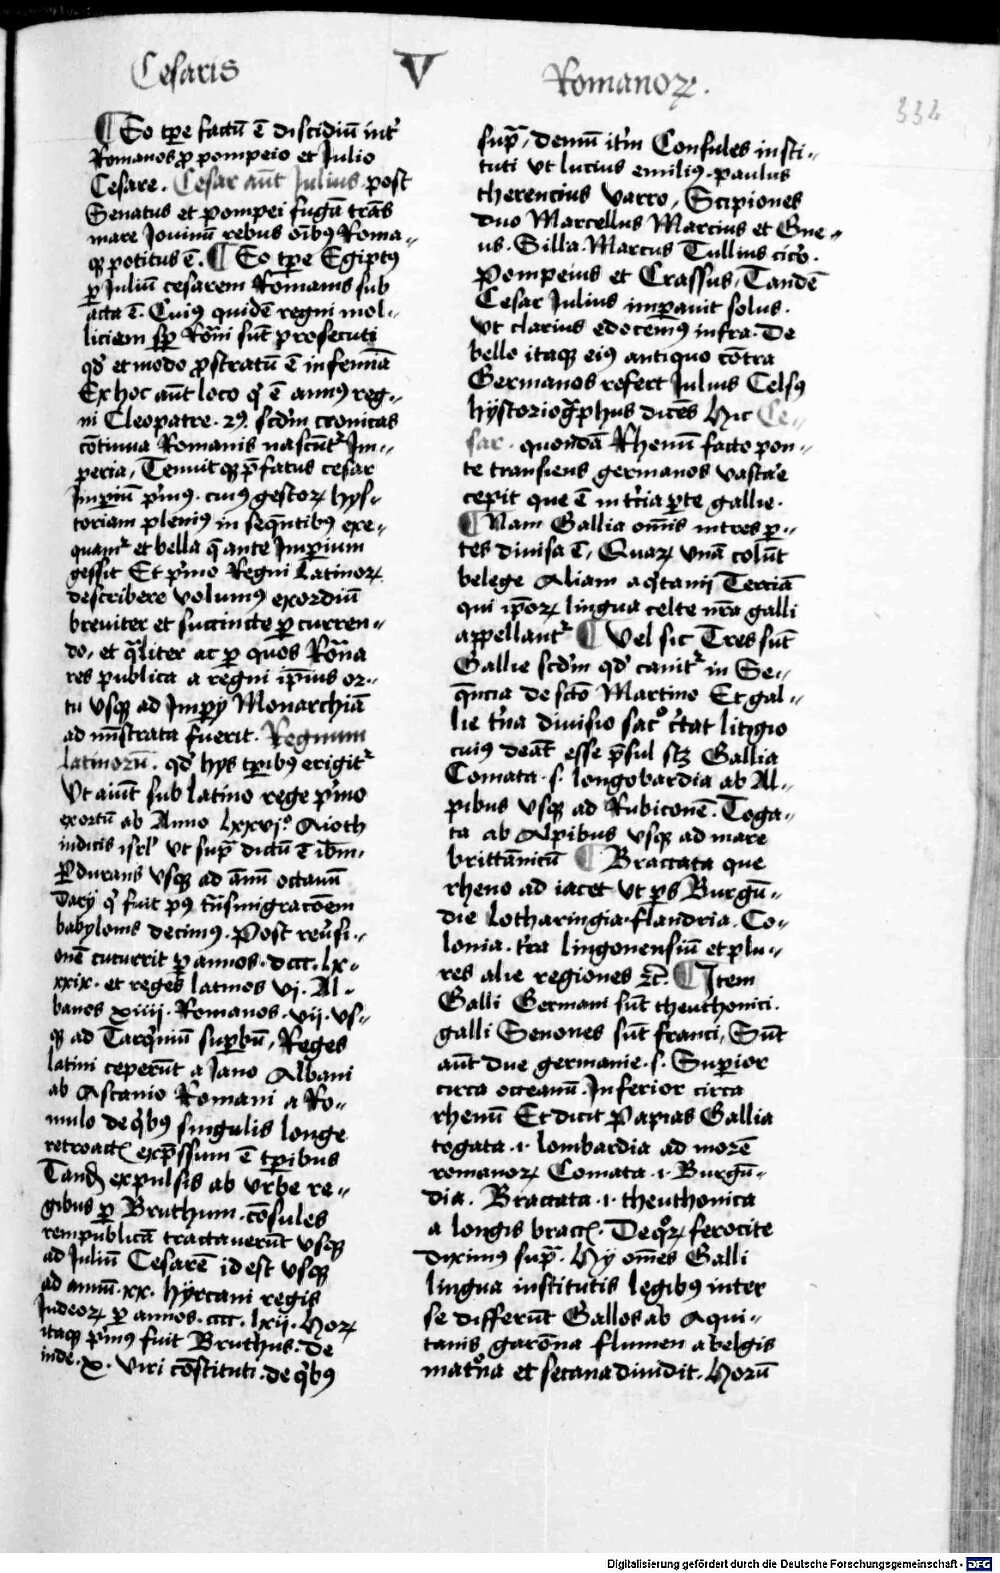 Cesaris V Romanoꝝ.
334
¶ Eo tꝑe factū ē discidiū int᷑
Romanos ꝓ pompeio et Julio
Cesare. Cesar aūt Julius post
Senatus et pompei fugā trās
mare Jouinū rebus oībꝰ Roma-
qꝫ potitus ē. ¶ Eo tꝑe Egiptꝰ
ꝑ Juliū cesarem Romanis sub
acta ē. Cuiꝰ quidē regni mol-
liciem sꝑ Rōni sūt prosecuti
qd' et modo ꝓstratū ē in feminā
Ex hoc aūt loco qi ē annꝰ reg-
ni Cleopatre. 2ꝰ. scd'm cronicas
cōtinua Romanis nascūt᷑ Im-
peria, Tenuit qꝫ p̄fatus cesar
Imꝑiū p'mꝰ. cuiꝰ gestoꝝ hys-
toriam pleniꝰ in seqn̄tibus exe-
quam᷑ et bella q̄ ante Imperium
gessit Et p'mo Regni Latinoꝝ
describere volumꝰ exordiū
breuiter et succincte ꝑcurren-
do, et qͣliter ac ꝑ quos Rōna
res publica a regni ip̄ius or-
tu vsqꝫ ad Imꝑy Monarchiā
ad mīstrata fuerit. Regnum
latinorū. qd' hys tꝑibꝰ erigit᷑
Vt aiūt sub latino rege p'mo
exortū ab Anno lxxvjº Aioth
iudicis isrl' vt supͣ dictū ē ibm.
ꝑdurans vsqꝫ ad annū octauū
Dary qi fuit pꝰ tūsmigracōem
babylonis decimꝰ. Post reūsi-
onē cucurrit ꝑ annos. dccc. lx-
xxix. et reges latinos vj. Al-
banos xiiij. Romanos. vij. vs-
qꝫ ad Tarq'niū suꝑbū, Reges
latini ceperūt a Jano Albani
ab Ascanio Romani a Ro-
mulo de qibꝰ singulis longe
retroact' exp̄ssum ē tꝑibus
Tandē expulsis ab vrbe re-
gibus ꝑ Bruthum. cōsules
rempublicā tractauerūt vsqꝫ
ad Juliū Cesarē id est vsqꝫ
ad annū. xx. hyrcani regis
Judeoꝝ ꝑ annos. cccc. lxij. Hoꝝ
itaqꝫ p'mꝰ fuit Bruthus. de
inde. x. viri cōstituti. de qibꝰ
supͣ, demū it'm Consules insti-
tuti vt lucius emiliꝰ. paulus
therencius varro, Scipiones
duo Marcellus Marcius et Gne-
us. Silla. Marcus Tullius cic'o.
Pompeius et Crassus, Tandē
Cesar Julius imꝑauit solus.
vt clarius edocemꝰ infra. De
bello itaqꝫ eiꝰ antiquo cōtra
Germanos refert Julius Celsꝰ
hystoriogͣphus dicēs Hic Ce-
sar. quondā Rhenū facto pon-
te transiens germanos vasta'e
cepit que ē in t'cia ꝑte gallie.
¶ Nam Gallia om̄is in tres ꝑ-
tes diuisa ē, Quaꝝ vnā colūt
belege Aliam aq'tanij Terciā
qui ip̄oꝝ lingua celte nr̄a galli
appellant᷑ ¶ Vel sic Tres sūt
Gallie scd'm qd' canit᷑ in Se-
qn̄cia de scto Martino Et gal-
lie t'na diuisio sacº c'tat litigio
cuiꝰ deāt esse p̄sul sꝫ Gallia
Comata. s. longobardia ab Al-
pibus vsqꝫ ad Rubiconē. Toga-
ta ab Alpibus vsqꝫ ad mare
brittānicū ¶ Braccata que
rheno ad iacet vt ꝑs Burgū-
die Lotharingia. flandria. Co-
lonia. t'ra lingonensiū et plu-
res alie regiones ⁊c. ¶ Item
Galli Germani sūt theuthonici.
galli Senones sūt franci, Sūt
aūt due germanie. s. Superior
circa occeanū. Inferior circa
rhenū Et dicit Papias Gallia
togata .i. lombardia ad morē
romanoꝝ Comata .i. Burgū-
dia. Braccata .i. theuthonica
a longis bracc'. De qºꝝ ferocite
diximꝰ supͣ. Hy om̄es Galli
lingua institutis legibꝰ inter
se differūt Gallos ab Aqui-
tanis garōna flumen a belgis
matrºna et secana diuidit. Horū
Digitalisierung gefördert durch die Deutsche Forschungsgemeinschaft - DFG